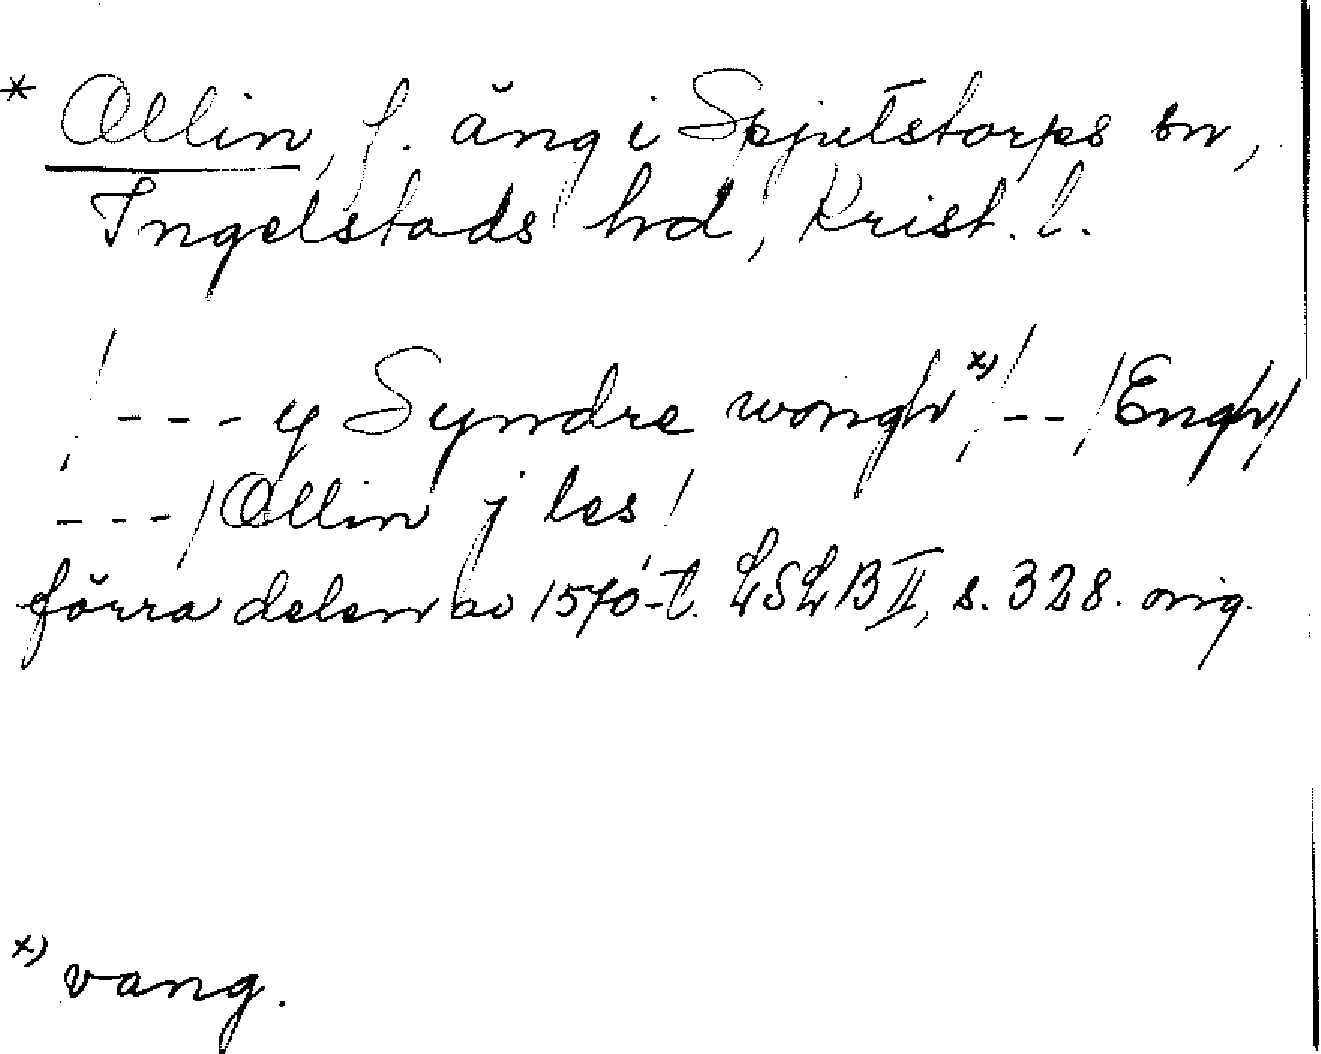 * Ollin, f. äng i Spjutstorps sn,
Ingelstads hd, Krist. l.
/--- y Syndre wongh x)/--/Engh/
---/Ollin j les/
förra delen av 1570-t. LSLB II, s. 328. orig.
x) vang.